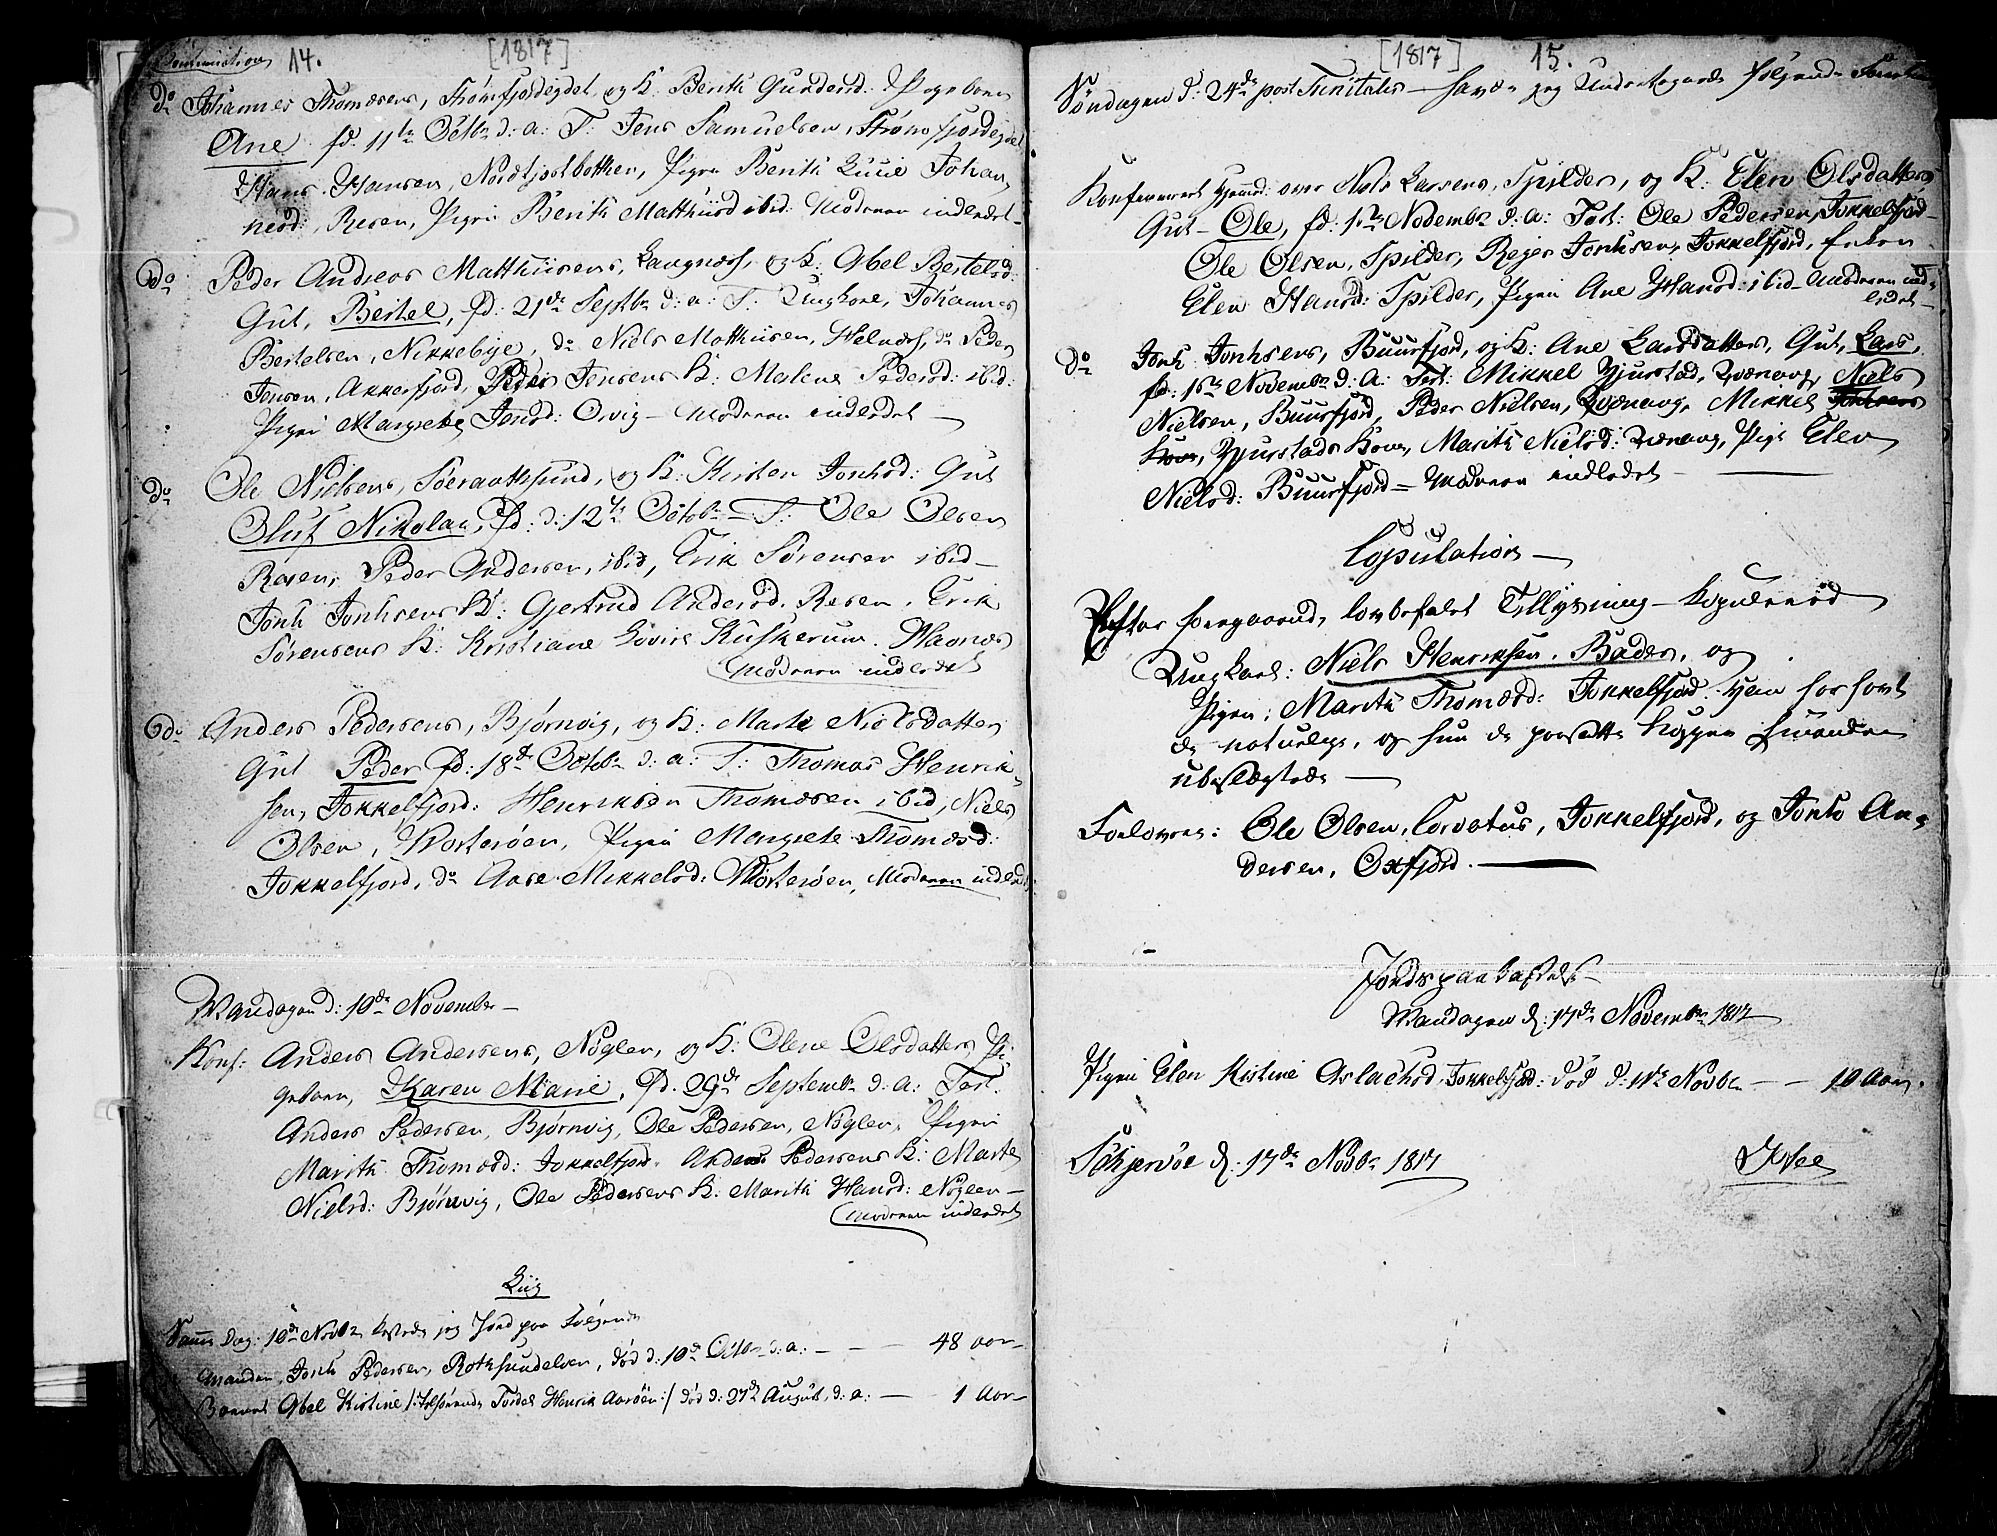 Communion 14. [1817]
do Johannes Thomæsens, Strømfjordeydet og K: Berith Gundersd: Pigebarn
Ane fd. 11te Octbr d: a: T: Jens Samuelsen, Strømfjordeydet
Hans Hansen, Nordkjostbotten, Pigen Berith Lucie Johan,
nesd: Reisen, Pigen Berith Matthiisd ibid: Moderen indledet
Do Peder Andreas Matthiisens, Laugnæs, og K: Abel Bertelsd:
Gut, Bertel, fd: 21de Septbr d: a: T: Ungkarl, Johannes
Bertelsen, Nikkebye, do Niels Matthisen, Helnæs, do Peder
Jensen, Akkerfjord, Peder Jensens K: Marlene Pedersd: ibid:
Pigen Margrete Jensd: Orvig — Moderen indledet —
Do Ole Nielsens, Sørraathsund, og K: Kirsten Jonhsd: Gut
Oluf Nikolai, fd: d: 12te Octobr — T: Ole Olsen
Reisen, Peder Andersen, ibid, Erik Sørensen ibid —
Jonh Jonhsens K: Gjertrud Andersd. Reisen, Erik
Sørensens K: Kristiane Lovise Kuskerum. Havnæs
Moderen indledet
Do Anders Pedersens, Bjørnvig, og K: Marte Nielsdatter
Gut Peder fd: 18de Octobr d: a: T: Thomas Henrik,
sen, Jøkkelfjord: Henriksen Thomæsen ibid, Niels
Olsen, Worterøen, Pigen Margrete Thomæsd:
Jøkkelfjord, do Aase Mikkelsd: Worterøen, Moderen indledet
Mandagen d: 10de November —
Konf: Anders Andersens, Nøglen, og K: Olene Olsdatters Pi
gebarn, Karen Marie, fd. 29de Septembr d: a: Test.
Anders Pedersen, Bjørnvig, Ole Pedersen, Nøglen, Pigen
Marith Thomæsd: Jokkelfjord. Anders Pedersens K: Marte
Nielsd: Bjørnvig, Ole Pedersens K: Marith Hansd: Nøglen —
Moderen indledet
Liig
Samme Dag: 10de Novbr kastede jeg Jord paa følgende
Manden, Jonh Pedersen, Rothsundelven, død d: 10de Octbr d: a: — — — 48 aar —
Barnet Abel Kirstine /: tilhørende Tordel Henrik Aarøen :/ død d: 27de August, d: a: — 1 Aar —
[1817] 15.
Søndagen d: 24de post Trinitatis — havde jeg Undertegnede følgende
Konfermeret Hjemmed: over Nels Larsens, Spilder, og K: Elen Olsdatters
Gut — Ole, fd: 1te Novembr d: a: Test: Ole Pedersen, Jokkelfjord —
Ole Olsen, Spilder, Reger Jonhsen, Jokkelfjord, Enken
Elen Hansd: Spilder, Pigen Ane Hansd: ibid — Moderen ind,
ledet —
Do Jonh Jonhsens, Buursfjord, og K: Ane Larsdatters, Gut, Lars,
fd: 1ste Novembr d: a: Test: Mikkel Hjurstad, Qvænang, Niels
Nielsen, Buursfjord, Peder Nielsen, Qvænang, Mikkel Jonhsens
Kone, Hjurstads Kone, Marith Nielsd: Qvænang, Pige Elen
Nielsd: Buursfjord — Moderen indledet —
Copulation —
Efter foregaaende, lovbefalet Tillysning — kopulered
Ungkarl: Niels Henriksen. Badder, og
Pigen: Marith Thomæsd: Jokkelfjord. Han har havt
de naturlige, og hun de paasatte Kopper hinanden
ubeslægtede —
Forlovere: Ole Olsen, Corvetus, Jokkelfjord, og Jonh An,
dersen, Oxfjord. —
Jordspaakastelse —
Mandagen d: 17de Novembr 1817
Pigen Elen Kistine Aslachsd Jokkelfjord: død d: 11te Novbr — — 10 Aar.
Skjervøe d: 17de Novbr 1817